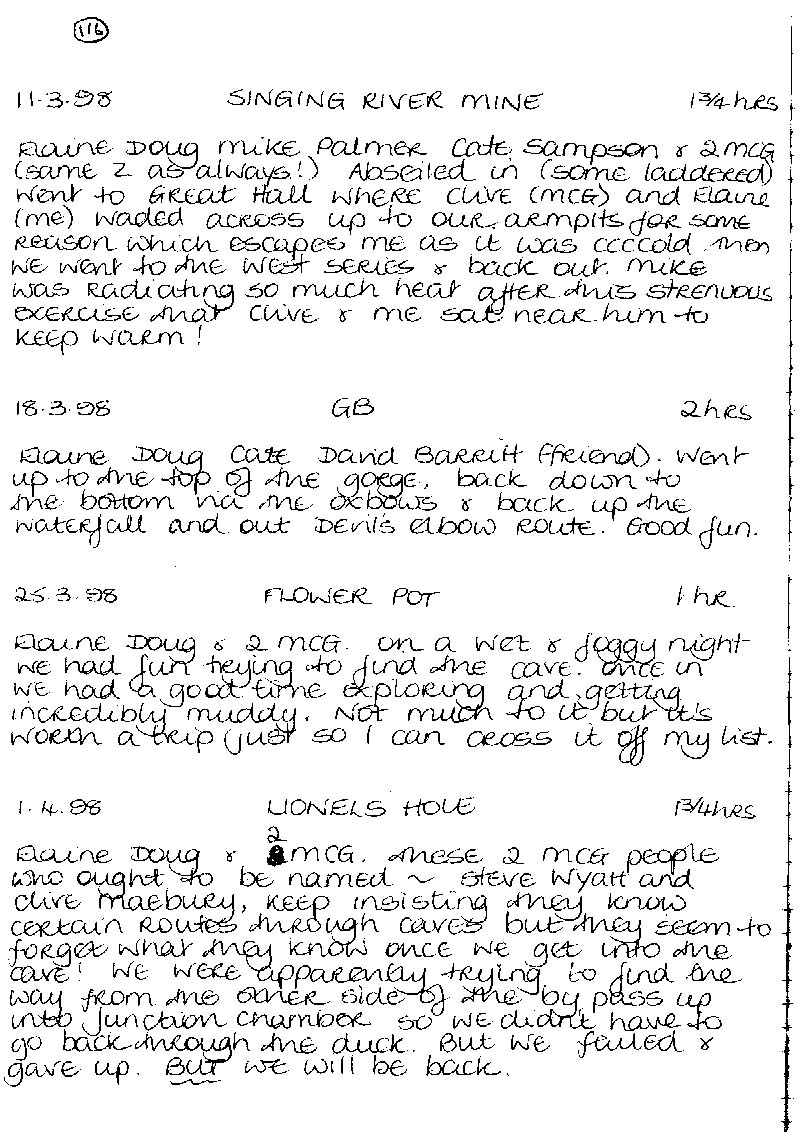 116
11.3.98 SINGING RIVER MINE 1 3/4 hrs
Elaine Doug Mike Palmer Cate Sampson & 2 MCG
(same 2 as always!) Abseiled in (some laddered)
went to Great Hall where Clive (MCG) and Elaine
(me) waded across up to our armpits for some
reason which escapes me as it was ccccold then
we went to the West Series & back out. Mike
was radiating so much heat after this strenuous
exercise that Clive & me sat near him to
keep warm!
18.3.98 GB 2 hrs
Elaine Doug Cate David Barritt (friend). Went
up to the top of the gorge, back down to
the bottom via the oxbows & back up the
waterfall and out Devil's elbow route. Good fun.
25.3.98 FLOWER POT 1 hr.
Elaine Doug & 2 MCG. On a wet & foggy night
we had fun trying to find the cave. Once in
we had a good time exploring and getting
incredibly muddy. Not much to it but it's
worth a trip (just so I can cross it off my list.
1.4.98 LIONELS HOLE 1 3/4 hrs
Elaine Doug & 2 MCG. These 2 MCG people
who ought to be named ~ Steve Wyatt and
Clive Maebury, keep insisting they know
certain routes through caves but they seem to
forget what they know once we get into the
cave! We were apparently trying to find the
way from the other side of the by pass up
into Junction Chamber so we didn't have to
go back through the duck. But we failed &
gave up. BUT we will be back.